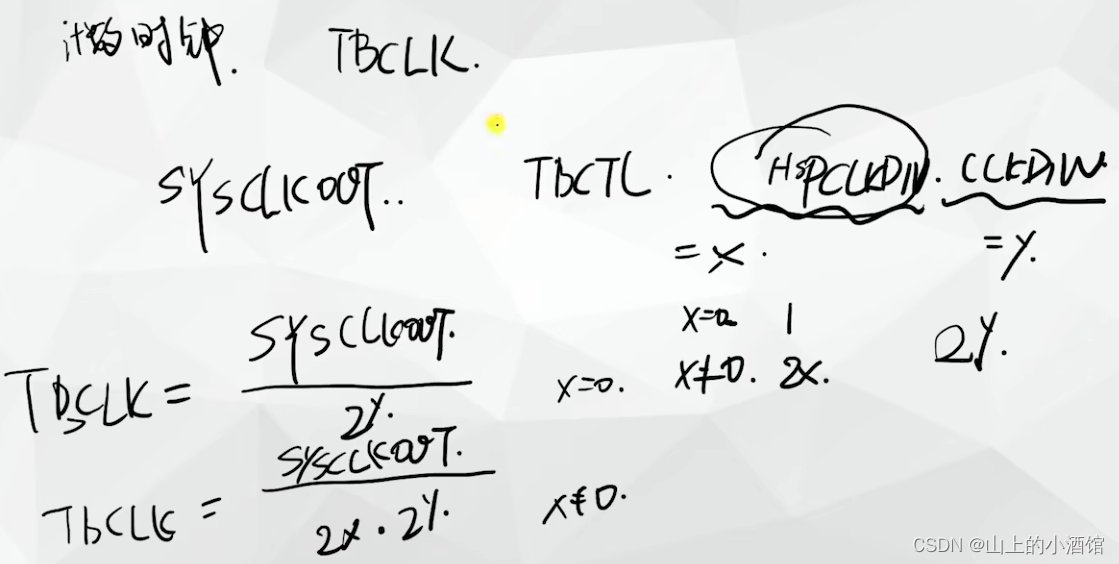 计数时钟. TBCLK.
SYSCLKOUT.. TBCTL. HSPCLKDIV. CLKDIV.
=x. =y.
x=0 1
x≠0. 2x. 2^y.
TBCLK = SYSCLKOUT. / 2^y. x=0.
TBCLK = SYSCLKOUT. / 2x · 2^y. x≠0.
CSDN @山上的小酒馆